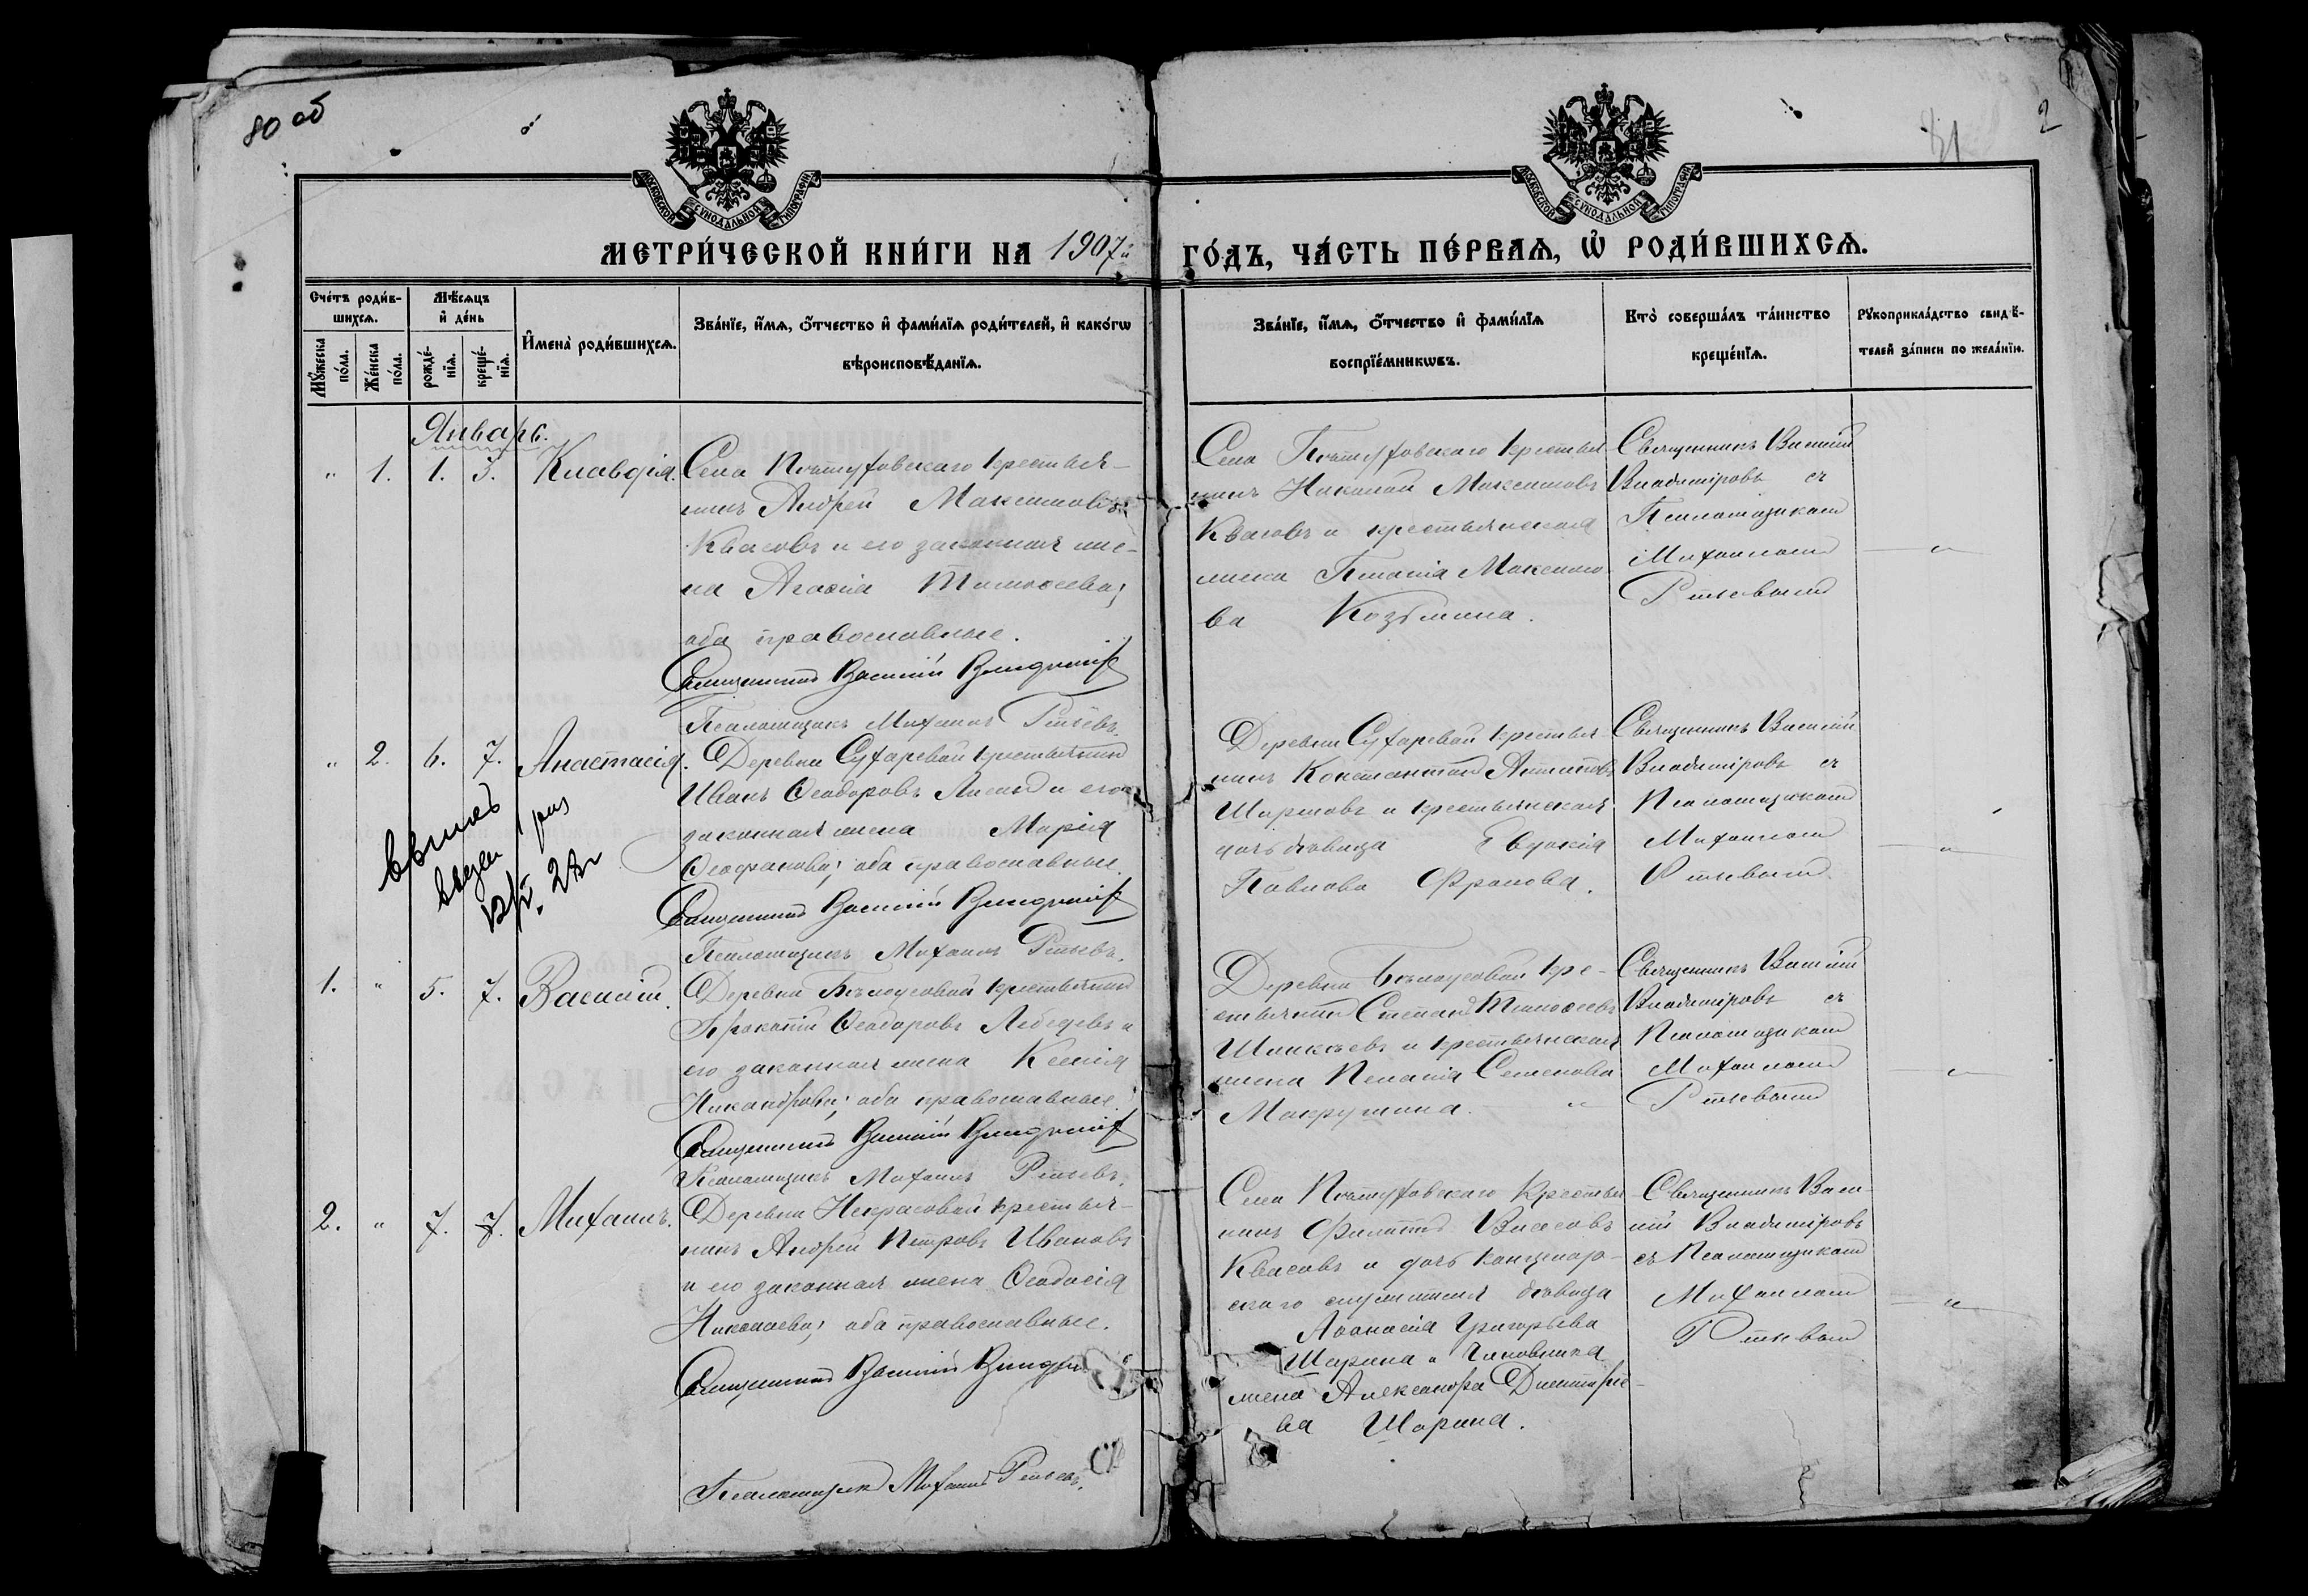 80 об
2
81
МОСКОВСКОЙ СѴНОДАЛЬНОЙ ТИПОГРАФІИ
МОСКОВСКОЙ СѴНОДАЛЬНОЙ ТИПОГРАФІИ
МЕТРИ́ЧЕСКОЙ КНИ́ГИ НА 1907й
ГО́ДЪ, ЧА́СТЬ ПЕ́РВАЯ, Ѡ҆ РОДИ́ВШИХСЯ.
Сче́тъ роди́в-
шихся.
Мѣ́сяцъ
и҆ де́нь
Мꙋ́жеска
по́ла.
Же́нска
по́ла.
рожде́-
нїя.
креще́-
нїя.
И҆мена̀ роди́вшихся.
Зва́нїе, и҆́мя, ѻ҆́тчество и҆ фами́лїя роди́телей, и҆ како́гѡ
вѣроисповѣ́данїя.
Зва́нїе, и҆́мя, ѻ҆́тчество и҆ фами́лїя
воспрїе́мникѡвъ.
Кто̀ соверша́лъ та́инство
креще́нїя.
Рꙋкоприкла́дство свидѣ́-
телей за́писи по жела́нїю.
Январь.
" 1. 1. 3. Клавдія.
Села крестья-
нинъ Андрей Максимовъ
Квасовъ и его законная же-
на Агаѳія Тимоѳеева;
оба православные.
Священникъ Василій Владиміровъ
Псаломщикъ Михаилъ
Села крестья-
нинъ Николай Максимовъ
Квасовъ и крестьянская
жена Максимо-
ва Козьмина.
Священникъ Василій
Владиміровъ съ
Псаломщикомъ
Михаиломъ
" 2. 6. 7. Анастасія.
Деревни Сухаревой крестьянинъ
Иванъ Ѳеодоровъ и его
законная жена Марія
Ѳеофанова; оба православные.
Священникъ Василій Владиміровъ
Псаломщикъ Михаилъ
Деревни Сухаревой крестья-
нинъ Константинъ
и крестьянская
дочь девица Евдокія
Павлова Фролова.
Священникъ Василій
Владиміровъ съ
Псаломщикомъ
Михаиломъ
1. " 5. 7. Василій.
Деревни Бѣлоусовой крестьянинъ
Прокопій Ѳеодоровъ Лебедевъ и
его законная жена Ксенія
Никандрова; оба православные.
Священникъ Василій Владиміровъ
Псаломщикъ Михаилъ
Деревни Бѣлоусовой кре-
стьянинъ Степанъ Тимоѳеевъ
и крестьянская
жена Пелагія Семенова
Макрушина. "
Священникъ Василій
Владиміровъ съ
Псаломщикомъ
Михаиломъ
2. " 7. 7. Михаилъ.
Деревни Некрасовой крестья-
нинъ Андрей Петровъ Ивановъ
и его законная жена Ѳеодосія
Николаева; оба православные.
Священникъ Василій
Псаломщикъ Михаилъ
Села Крестья-
нинъ Филиппъ Власовъ
Квасовъ и дочь канцеляр-
скаго служителя дѣвица
Аѳанасія Григорьева
Шарина и Чиновника
жена Александра Димитріе-
ва Шарина.
Священникъ Васи-
лій Владиміровъ
съ Псаломщикомъ
Михаиломъ